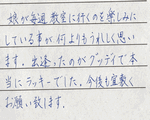 娘が毎週教室に行くのを楽しみに
している事が何よりもうれしく思い
ます。出逢ったのがグッディで本
当にラッキーでした。今後も宜敷く
お願い致します。